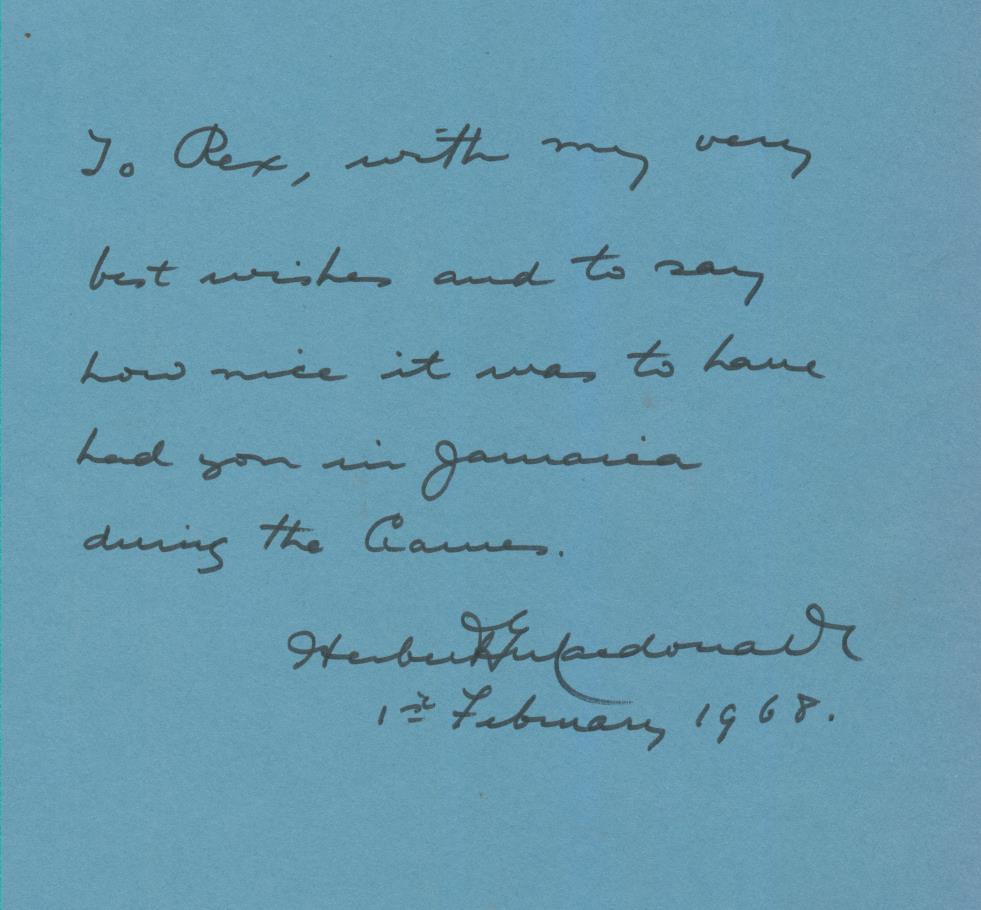 To Rex, with my very
best wishes and to say
how nice it was to have
had you in Jamaica
during the Games.
Herbert Macdonald
1st February 1968.